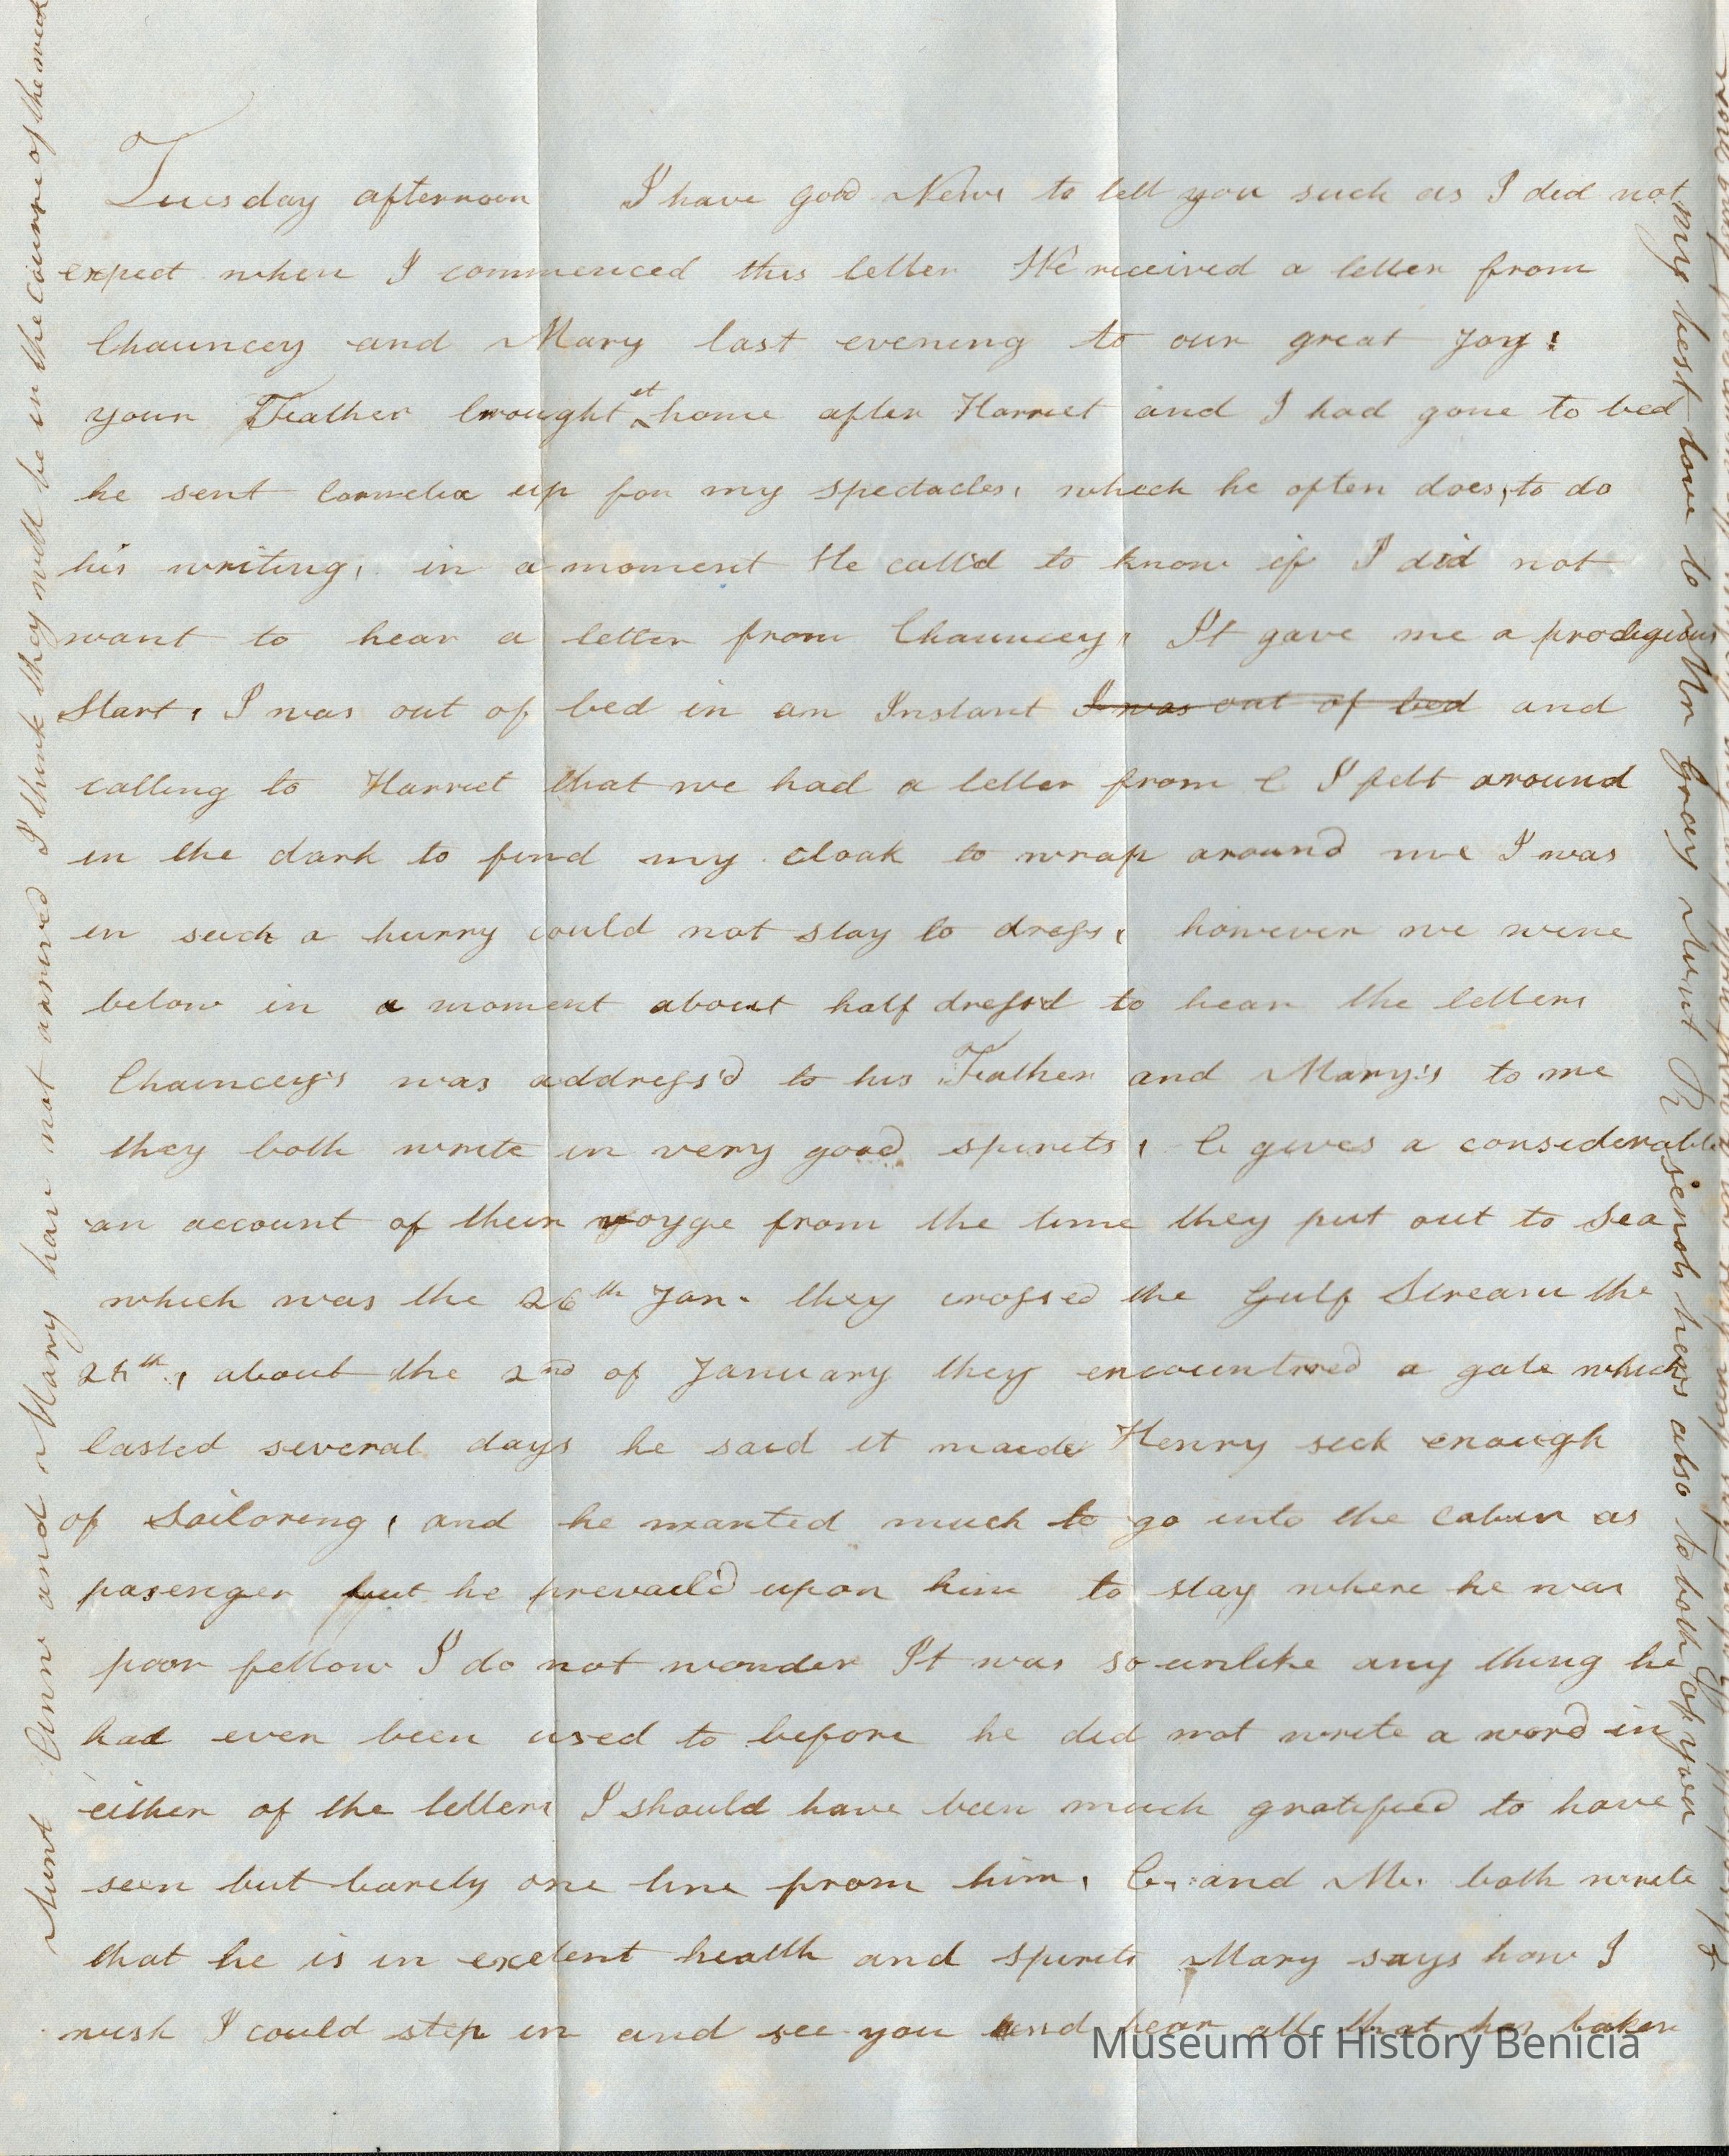 Tuesday afternoon I have good News to tell you such as I did not
expect when I commenced this letter We received a letter from
Chauncey and Mary last evening to our great Joy!
your Father brought it home after Harriet and I had gone to bed
he sent Cornelia up for my spectacles, which he often does, to do
his writing, in a moment He call'd to know if I did not
want to hear a letter from Chauncey, It gave me a prodigious
start, I was out of bed in an Instant I was out of bed and
calling to Harriet that we had a letter from C I felt around
in the dark to find my cloak to wrap around me I was
in such a hurry could not stay to dress, however we were
below in a moment about half dress'd to hear the letters
Chauncey's was address'd to his Father and Mary's to me
they both write in very good spirits, C gives a considerable
an account of their voyge from the time they put out to sea
which was the 26th Jan. they crossed the Gulf Stream the
28th, about the 2nd of January they encountrred a gale which
lasted several days he said it made Henry sick enough
of Sailoring, and he wanted much to go into the cabin as
pasenger but he prevail'd upon him to stay where he was
poor fellow I do not wonder It was so unlike any thing he
had ever been used to before he did not write a word in
either of the letters I should have been much gratified to have
seen but barely one line from him, C. and M. both write
that he is in exelent health and spirits Mary says how I
wish I could step in and see you and hear all that has taken
Aunt Ann and Mary have not arrived I think they will be in the course of the week
my best love to Mr Gray Aunt P sends hers also to both of you
Museum of History Benicia